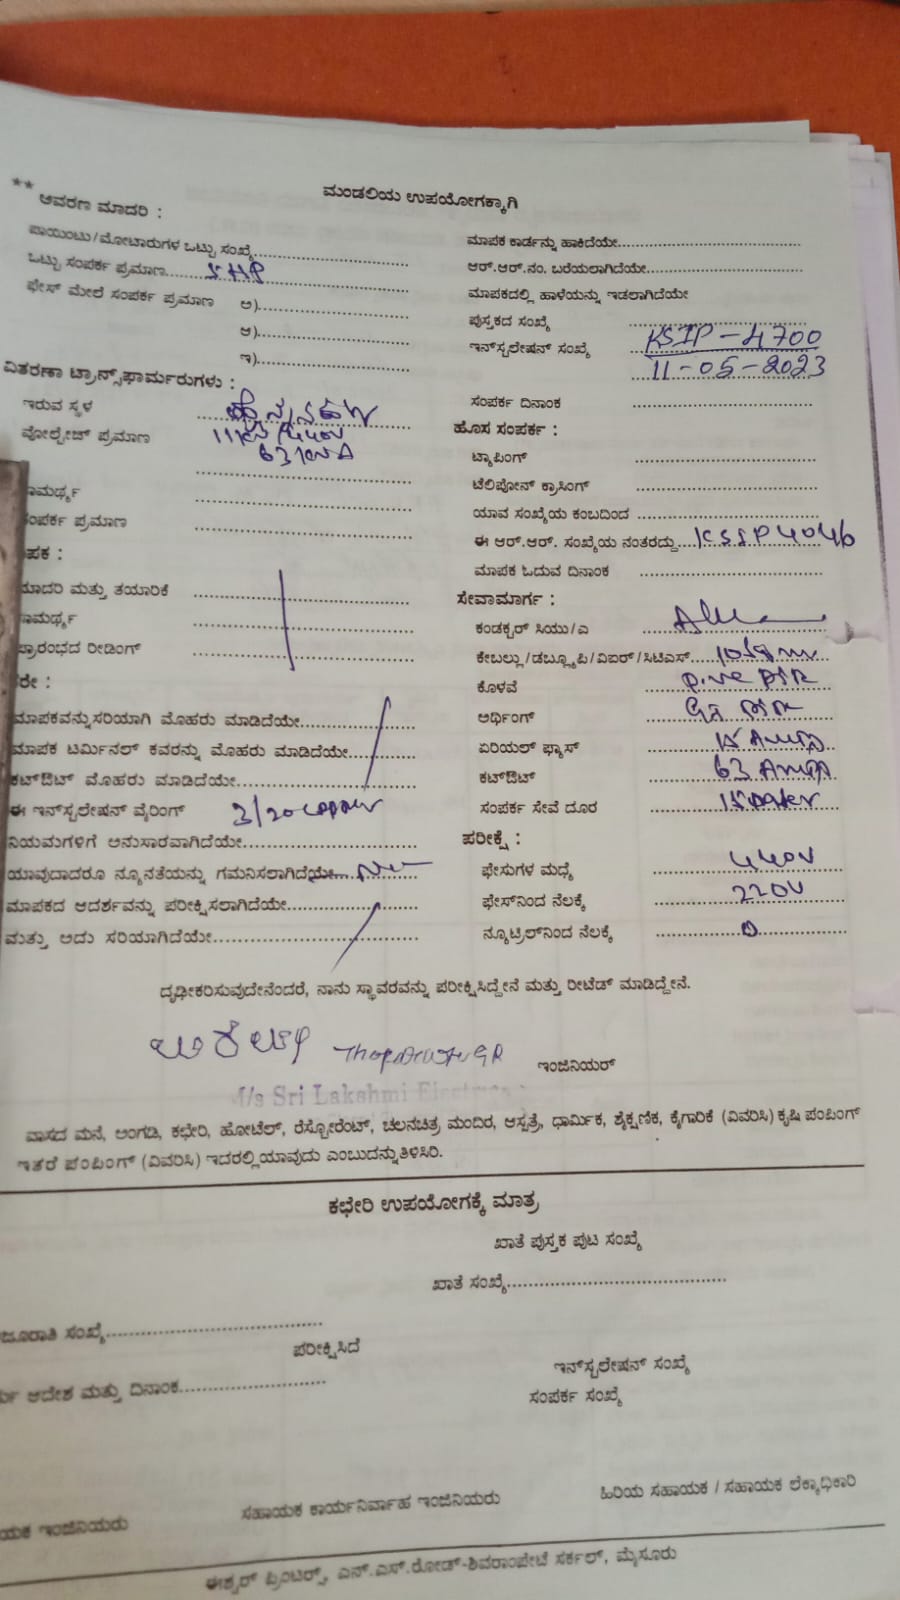 **
ಮಂಡಲಿಯ ಉಪಯೋಗಕ್ಕಾಗಿ
ಆವರಣ ಮಾದರಿ :
ಪಾಯಿಂಟು/ಮೋಟಾರುಗಳ ಒಟ್ಟು ಸಂಖ್ಯೆ
ಒಟ್ಟು ಸಂಪರ್ಕ ಪ್ರಮಾಣ 5 HP
ಫೇಸ್ ಮೇಲೆ ಸಂಪರ್ಕ ಪ್ರಮಾಣ ಅ)
ಆ)
ಇ)
ವಿತರಣಾ ಟ್ರಾನ್ಸ್‌ಫಾರ್ಮರುಗಳು :
ಇರುವ ಸ್ಥಳ
ವೋಲ್ಟೇಜ್ ಪ್ರಮಾಣ 11KV/440V
63 KVA
ಾಮರ್ಥ್ಯ
ಸಂಪರ್ಕ ಪ್ರಮಾಣ
ಾಪಕ :
ಮಾದರಿ ಮತ್ತು ತಯಾರಿಕೆ
ಾಮರ್ಥ್ಯ
ಪ್ರಾರಂಭದ ರೀಡಿಂಗ್
ರೇ :
ಮಾಪಕವನ್ನು ಸರಿಯಾಗಿ ಮೊಹರು ಮಾಡಿದೆಯೇ
ಮಾಪಕ ಟರ್ಮಿನಲ್ ಕವರನ್ನು ಮೊಹರು ಮಾಡಿದೆಯೇ
ಕಟ್‌ಔಟ್ ಮೊಹರು ಮಾಡಿದೆಯೇ
ಈ ಇನ್‌ಸ್ಟಲೇಷನ್ ವೈರಿಂಗ್ 3/20 copper
ನಿಯಮಗಳಿಗೆ ಅನುಸಾರವಾಗಿದೆಯೇ
ಯಾವುದಾದರೂ ನ್ಯೂನತೆಯನ್ನು ಗಮನಿಸಲಾಗಿದೆಯೇ
ಮಾಪಕದ ಆದರ್ಶವನ್ನು ಪರೀಕ್ಷಿಸಲಾಗಿದೆಯೇ
ಮತ್ತು ಅದು ಸರಿಯಾಗಿದೆಯೇ
ಮಾಪಕ ಕಾರ್ಡನ್ನು ಹಾಕಿದೆಯೇ
ಆರ್.ಆರ್.ನಂ. ಬರೆಯಲಾಗಿದೆಯೇ
ಮಾಪಕದಲ್ಲಿ ಹಾಳೆಯನ್ನು ಇಡಲಾಗಿದೆಯೇ
ಪುಸ್ತಕದ ಸಂಖ್ಯೆ
ಇನ್‌ಸ್ಟಲೇಷನ್ ಸಂಖ್ಯೆ KSIP-4700
11-05-2023
ಸಂಪರ್ಕ ದಿನಾಂಕ
ಹೊಸ ಸಂಪರ್ಕ :
ಟ್ಯಾಪಿಂಗ್
ಟೆಲಿಫೋನ್ ಕ್ರಾಸಿಂಗ್
ಯಾವ ಸಂಖ್ಯೆಯ ಕಂಬದಿಂದ
ಈ ಆರ್.ಆರ್. ಸಂಖ್ಯೆಯ ನಂತರದ್ದು KSIP4046
ಮಾಪಕ ಓದುವ ದಿನಾಂಕ
ಸೇವಾಮಾರ್ಗ :
ಕಂಡಕ್ಟರ್ ಸಿಯು/ಎ
ಕೇಬಲ್ಲು/ಡಬ್ಲ್ಯೂಪಿ/ವಿಐರ್/ಸಿಟಿಎಸ್
ಕೊಳವೆ
ಅರ್ಥಿಂಗ್
ಏರಿಯಲ್ ಫ್ಯೂಸ್ 15 Amp
ಕಟ್‌ಔಟ್ 63 Amp
ಸಂಪರ್ಕ ಸೇವೆ ದೂರ
ಪರೀಕ್ಷೆ :
ಫೇಸುಗಳ ಮಧ್ಯೆ 440V
ಫೇಸ್‌ನಿಂದ ನೆಲಕ್ಕೆ 220V
ನ್ಯೂಟ್ರಲ್‌ನಿಂದ ನೆಲಕ್ಕೆ 0
ದೃಢೀಕರಿಸುವುದೇನೆಂದರೆ, ನಾನು ಸ್ಥಾವರವನ್ನು ಪರೀಕ್ಷಿಸಿದ್ದೇನೆ ಮತ್ತು ರೀಟೆಡ್ ಮಾಡಿದ್ದೇನೆ.
ಇಂಜಿನಿಯರ್
M/s Sri Lakshmi
ವಾಸದ ಮನೆ, ಅಂಗಡಿ, ಕಛೇರಿ, ಹೋಟೆಲ್, ರೆಸ್ಟೋರೆಂಟ್, ಚಲನಚಿತ್ರ ಮಂದಿರ, ಆಸ್ಪತ್ರೆ, ಧಾರ್ಮಿಕ, ಶೈಕ್ಷಣಿಕ, ಕೈಗಾರಿಕೆ (ವಿವರಿಸಿ) ಕೃಷಿ ಪಂಪಿಂಗ್
ಇತರೆ ಪಂಪಿಂಗ್ (ವಿವರಿಸಿ) ಇದರಲ್ಲಿ ಯಾವುದು ಎಂಬುದನ್ನು ತಿಳಿಸಿರಿ.
ಕಛೇರಿ ಉಪಯೋಗಕ್ಕೆ ಮಾತ್ರ
ಖಾತೆ ಪುಸ್ತಕ ಪುಟ ಸಂಖ್ಯೆ
ಖಾತೆ ಸಂಖ್ಯೆ
ಜೂರಾತಿ ಸಂಖ್ಯೆ
ಪರೀಕ್ಷಿಸಿದೆ
ಆದೇಶ ಮತ್ತು ದಿನಾಂಕ
ಇನ್‌ಸ್ಟಲೇಷನ್ ಸಂಖ್ಯೆ
ಸಂಪರ್ಕ ಸಂಖ್ಯೆ
ಯಕ ಇಂಜಿನಿಯರು
ಸಹಾಯಕ ಕಾರ್ಯನಿರ್ವಾಹ ಇಂಜಿನಿಯರು
ಹಿರಿಯ ಸಹಾಯಕ / ಸಹಾಯಕ ಲೆಕ್ಕಾಧಿಕಾರಿ
ಈಶ್ವರ್ ಪ್ರಿಂಟರ್ಸ್, ಎನ್.ಎಸ್.ರೋಡ್-ಶಿವರಾಂಪೇಟೆ ಸರ್ಕಲ್, ಮೈಸೂರು